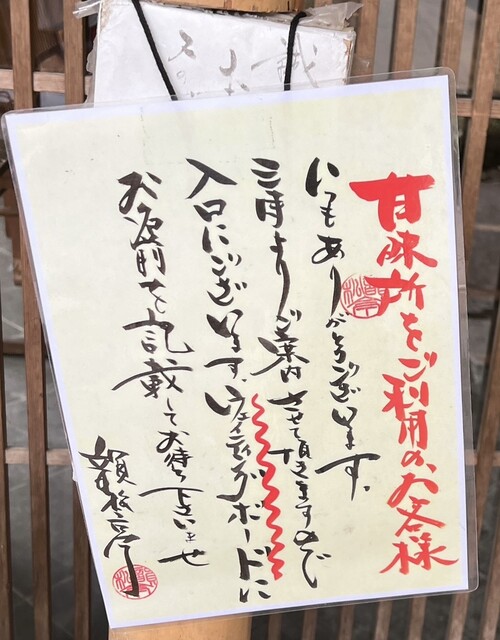 甘味所をご利用のお客様
いつもありがとうございます。
三時よりご案内させて頂きますので
入口にございます、ウェイティングボードに
お名前を記載してお待ち下さいませ
韻松亭